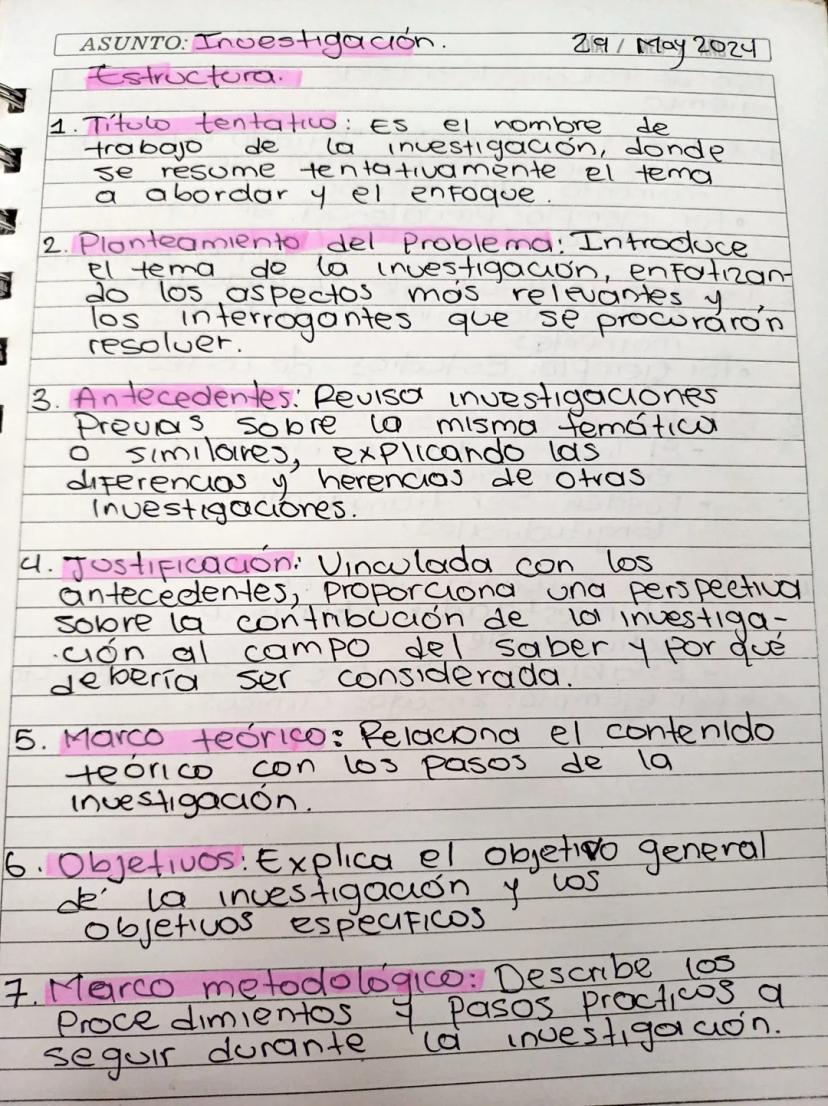 ASUNTO: Investigación. 29/May 2024
Estructura.
1. Título tentativo: Es el nombre de
trabajo de la investigación, donde
se resume tentativamente el tema
a abordar y el enfoque.
2. Planteamiento del problema: Introduce
el tema de la investigación, enfatizan-
do los aspectos más relevantes y
los interrogantes que se procurarón
resolver.
3. Antecedentes: Revisa investigaciones
Previas sobre la misma temática
o similares, explicando las
diferencias y herencias de otras
investigaciones.
4. Justificación: Vinculada con los
antecedentes, proporciona una perspectiva
sobre la contribución de la investiga-
ción al campo del saber y por qué
debería ser considerada.
5. Marco teórico: Relaciona el contenido
teórico con los pasos de la
investigación.
6. Objetivos: Explica el objetivo general
de la investigación y los
objetivos especificos
7. Marco metodológico: Describe los
procedimientos y pasos practicos a
seguir durante la investigación.